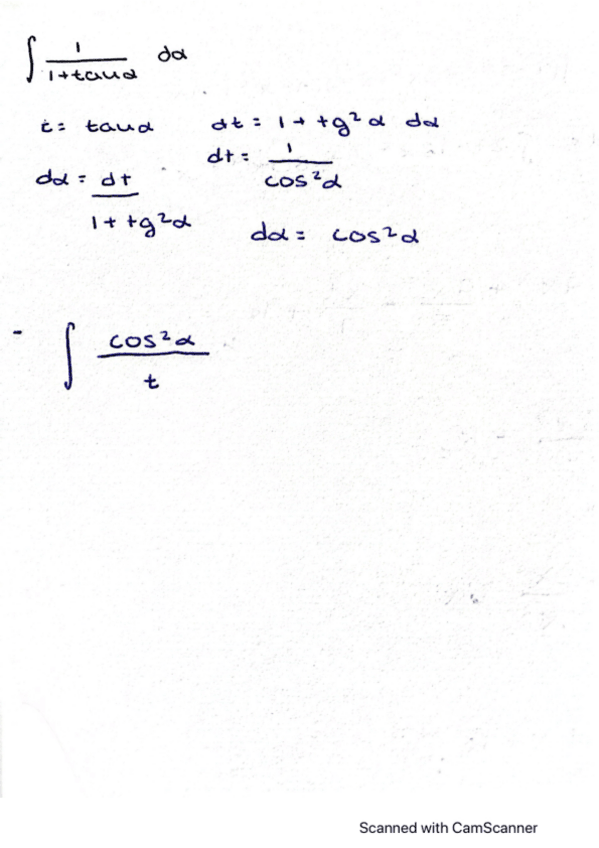 ∫ 1/(1+tanα) dα
t = tanα dt = 1 + tg²α dα
dt = 1/cos²α
dα = dt/(1 + tg²α)
dα = cos²α
- ∫ cos²α/t
Scanned with CamScanner